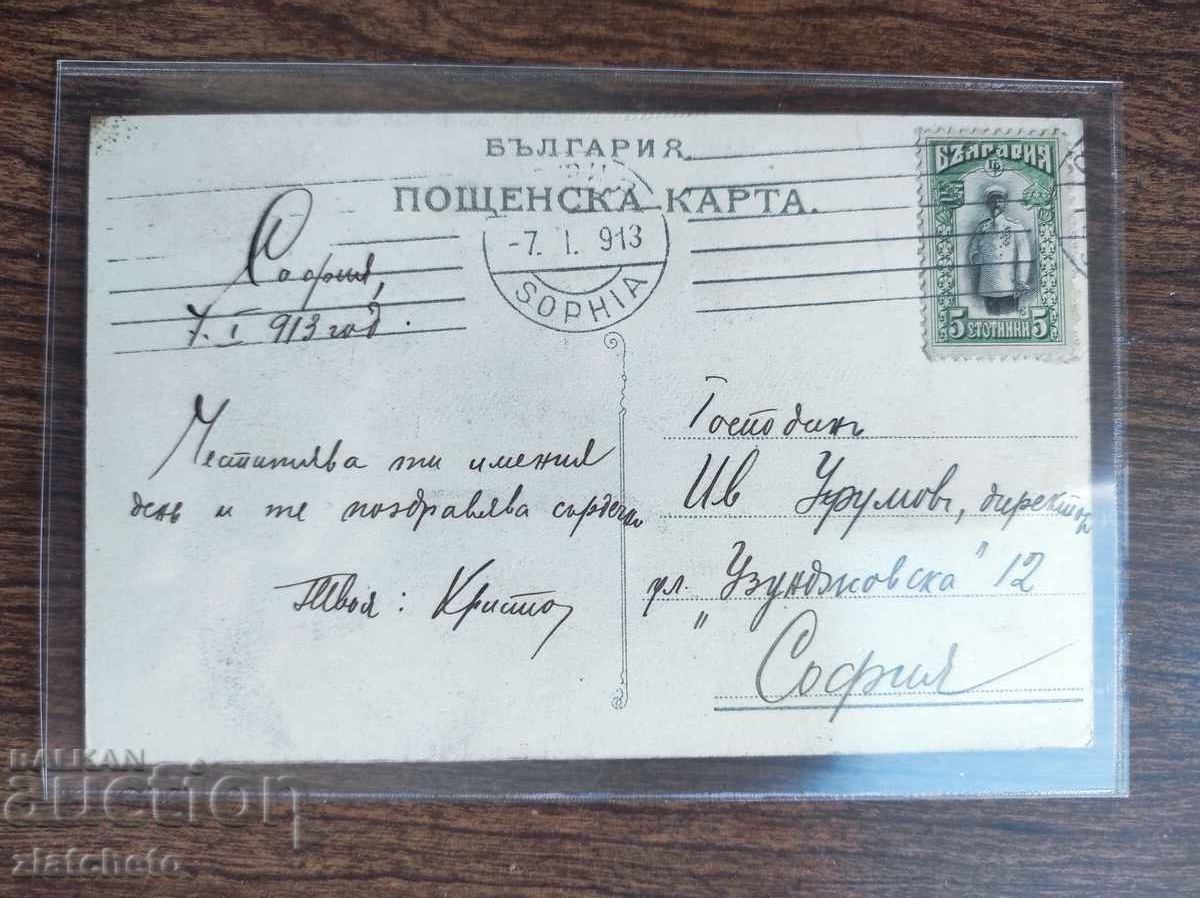 БЪЛГАРИЯ.
ПОЩЕНСКА КАРТА.
-7. I. 913
SOPHIA
БЪЛГАРИЯ
5 СТОТИНКИ 5
София,
7. I 913 год.
Честитява ти имения
день и те поздравлява сърдечно
Твоя: Христо
Господинъ
Ив Урумовъ, директор
ул. „Узунджовска" 12
София
BALKAN
auction
zlatcheto